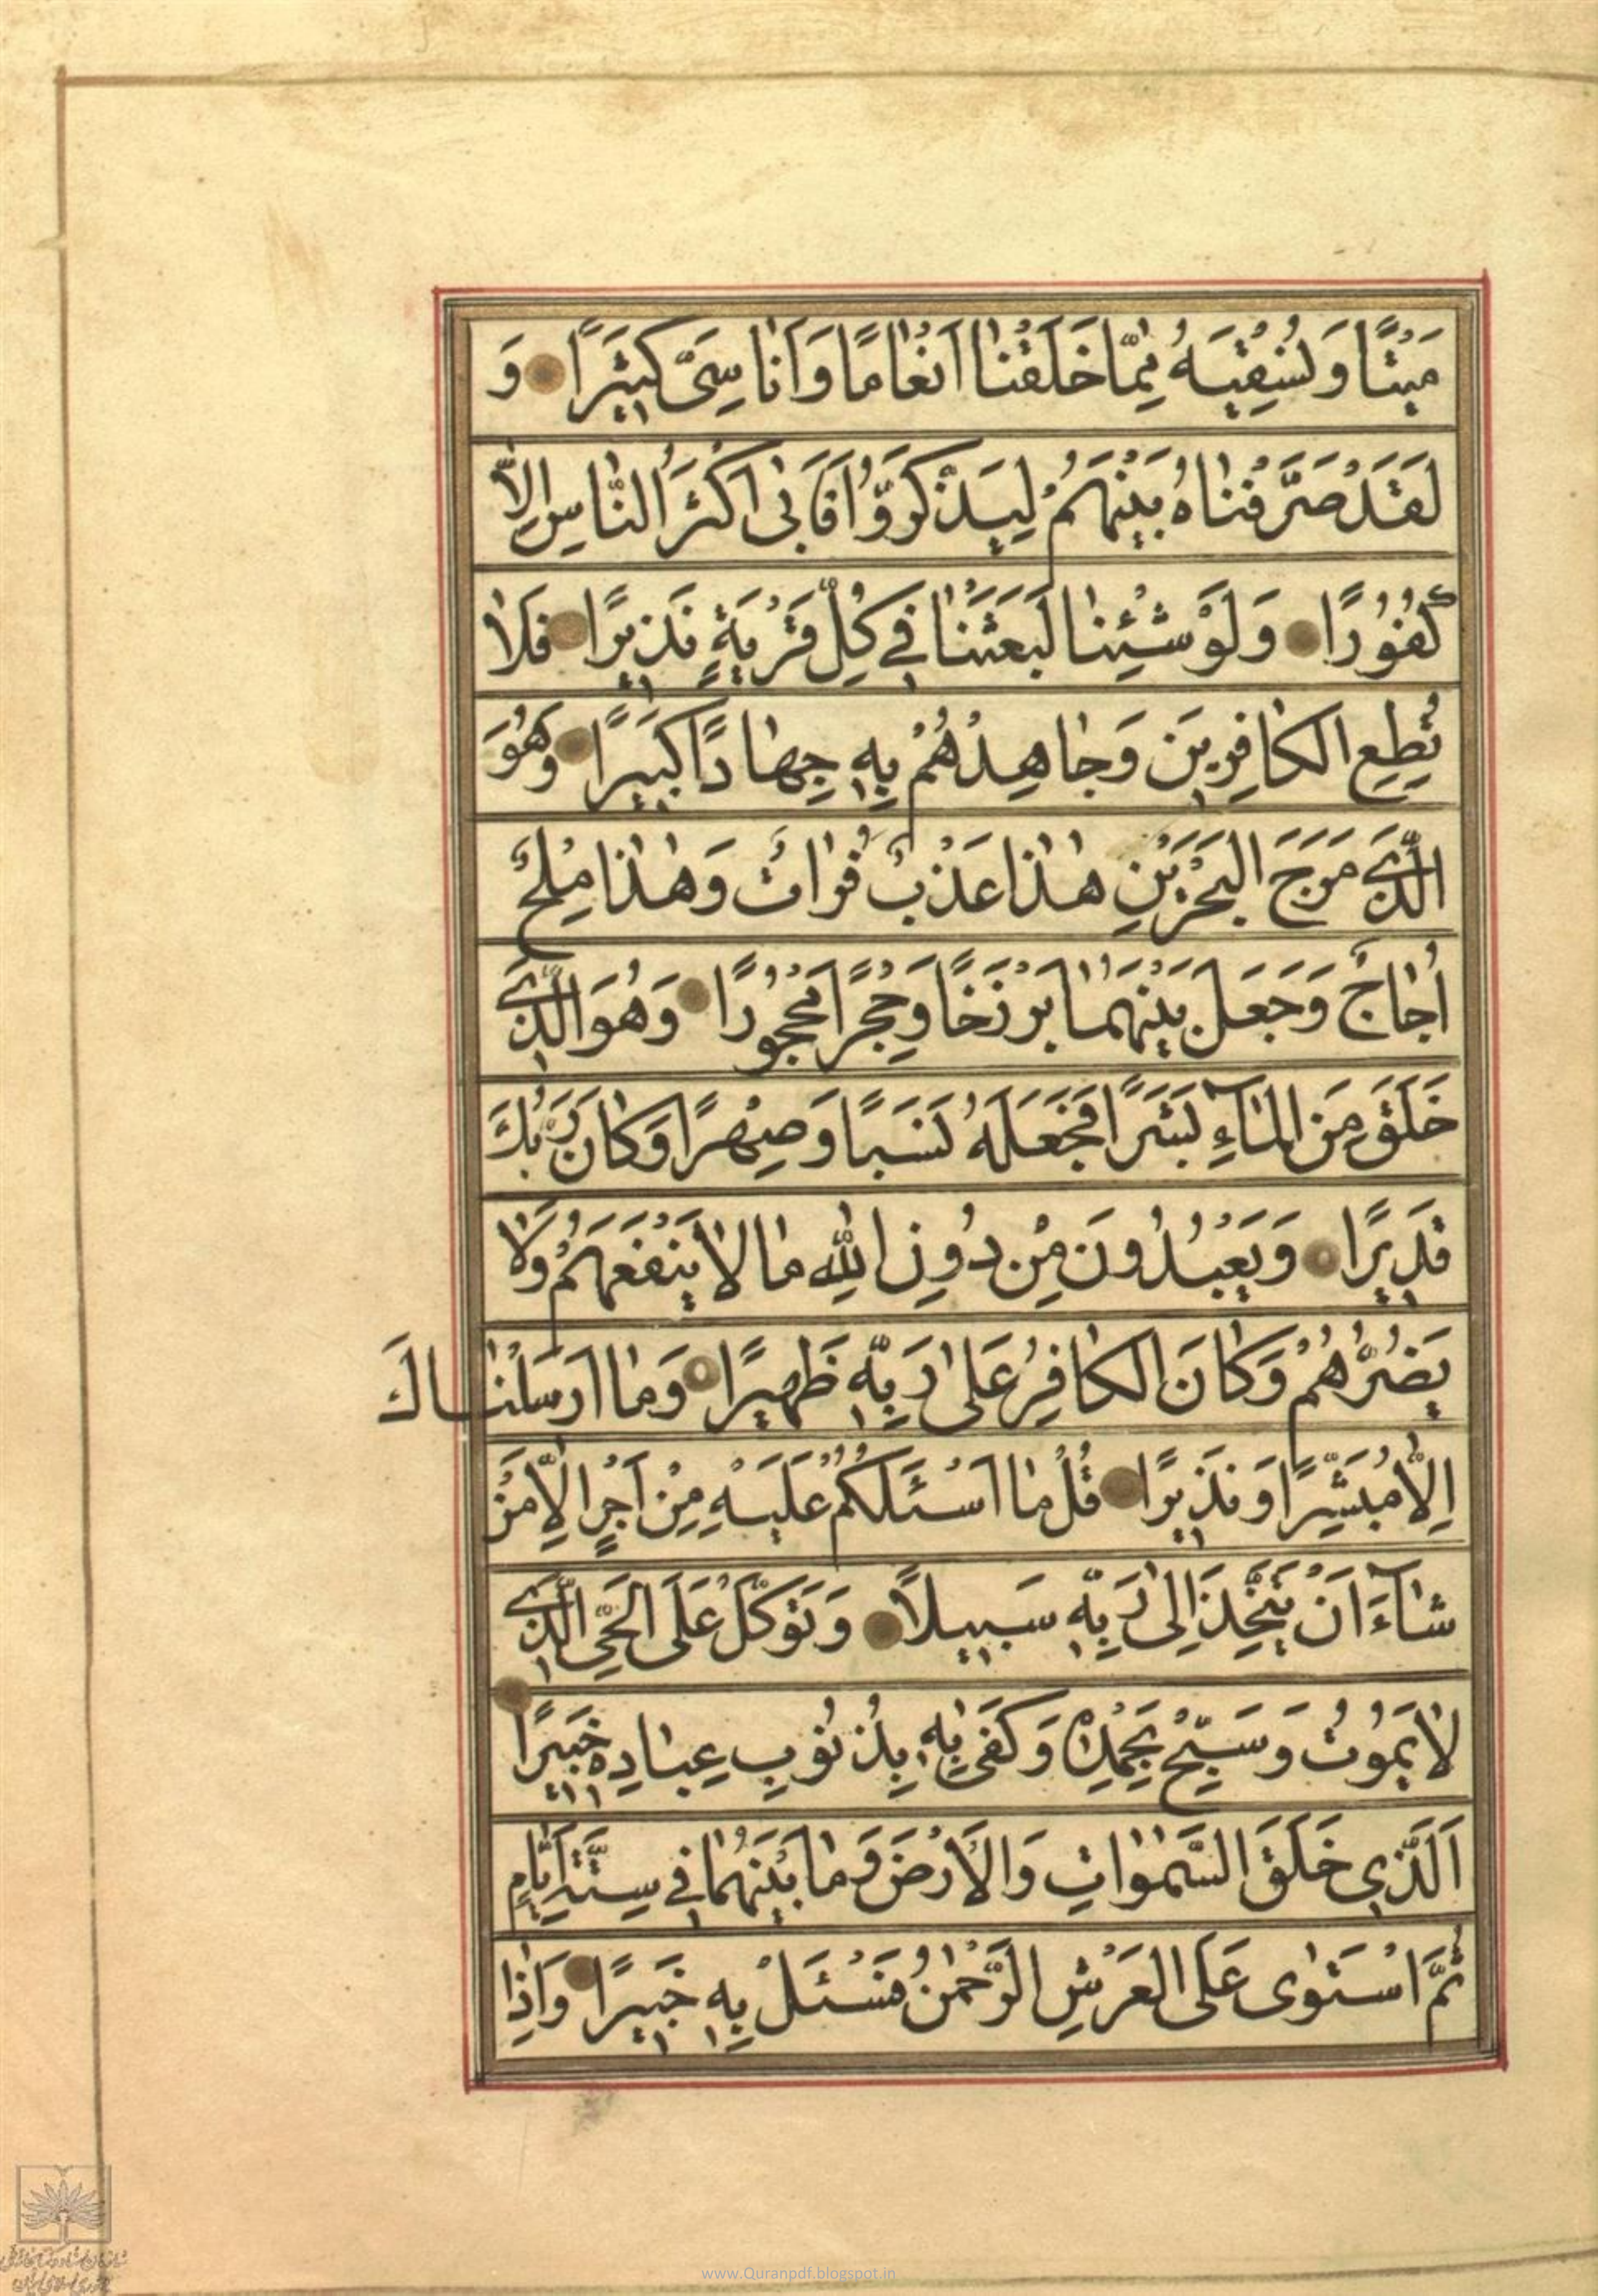 مَيْتًا وَنُسْقِيَهُ مِمَّا خَلَقْنَا اَنْعَامًا وَاَنَاسِىَّ كَثيرًا وَ
لَقَدْ صَرَّفْنَاهُ بَيْنَهُمْ لِيَذَّكَّرُوا فَاَبى اَكْثَرُ النَّاسِ اِلَّا
كُفُورًا وَلَوْ شِئْنَا لَبَعَثْنَا فى كُلِّ قَرْيَةٍ نَذيرًا فَلَا
تُطِعِ الكَافِرينَ وَجَاهِدْهُمْ بِه جِهَادًا كَبيرًا وَهُوَ
الَّذى مَرَجَ البَحْرَيْنِ هٰذَا عَذْبٌ فُرَاتٌ وَهٰذَا مِلْحٌ
اُجَاجٌ وَجَعَلَ بَيْنَهُمَا بَرْزَخًا وَحِجْرًا مَحْجُورًا وَهُوَ الَّذى
خَلَقَ مِنَ المَآءِ بَشَرًا فَجَعَلَهُ نَسَبًا وَصِهْرًا وَكَانَ رَبُّكَ
قَديرًا وَيَعْبُدُونَ مِنْ دُونِ اللهِ مَا لَا يَنْفَعُهُمْ وَلَا
يَضُرُّهُمْ وَكَانَ الكَافِرُ عَلى رَبِّه ظَهيرًا وَمَا اَرْسَلْنَاكَ
اِلَّا مُبَشِّرًا وَنَذيرًا قُلْ مَا اَسْئَلُكُمْ عَلَيْهِ مِنْ اَجْرٍ اِلَّا مَنْ
شَآءَ اَنْ يَتَّخِذَ اِلى رَبِّه سَبيلًا وَتَوَكَّلْ عَلَى الحَىِّ الَّذى
لَا يَمُوتُ وَسَبِّحْ بِحَمْدِه وَكَفى بِه بِذُنُوبِ عِبَادِه خَبيرًا
اَلَّذى خَلَقَ السَّمٰوَاتِ وَالاَرْضَ وَمَا بَيْنَهُمَا فى سِتَّةِ اَيَّامٍ
ثُمَّ اسْتَوى عَلَى العَرْشِ الرَّحْمٰنُ فَسْئَلْ بِه خَبيرًا وَاِذَا
www.Quranpdf.blogspot.in